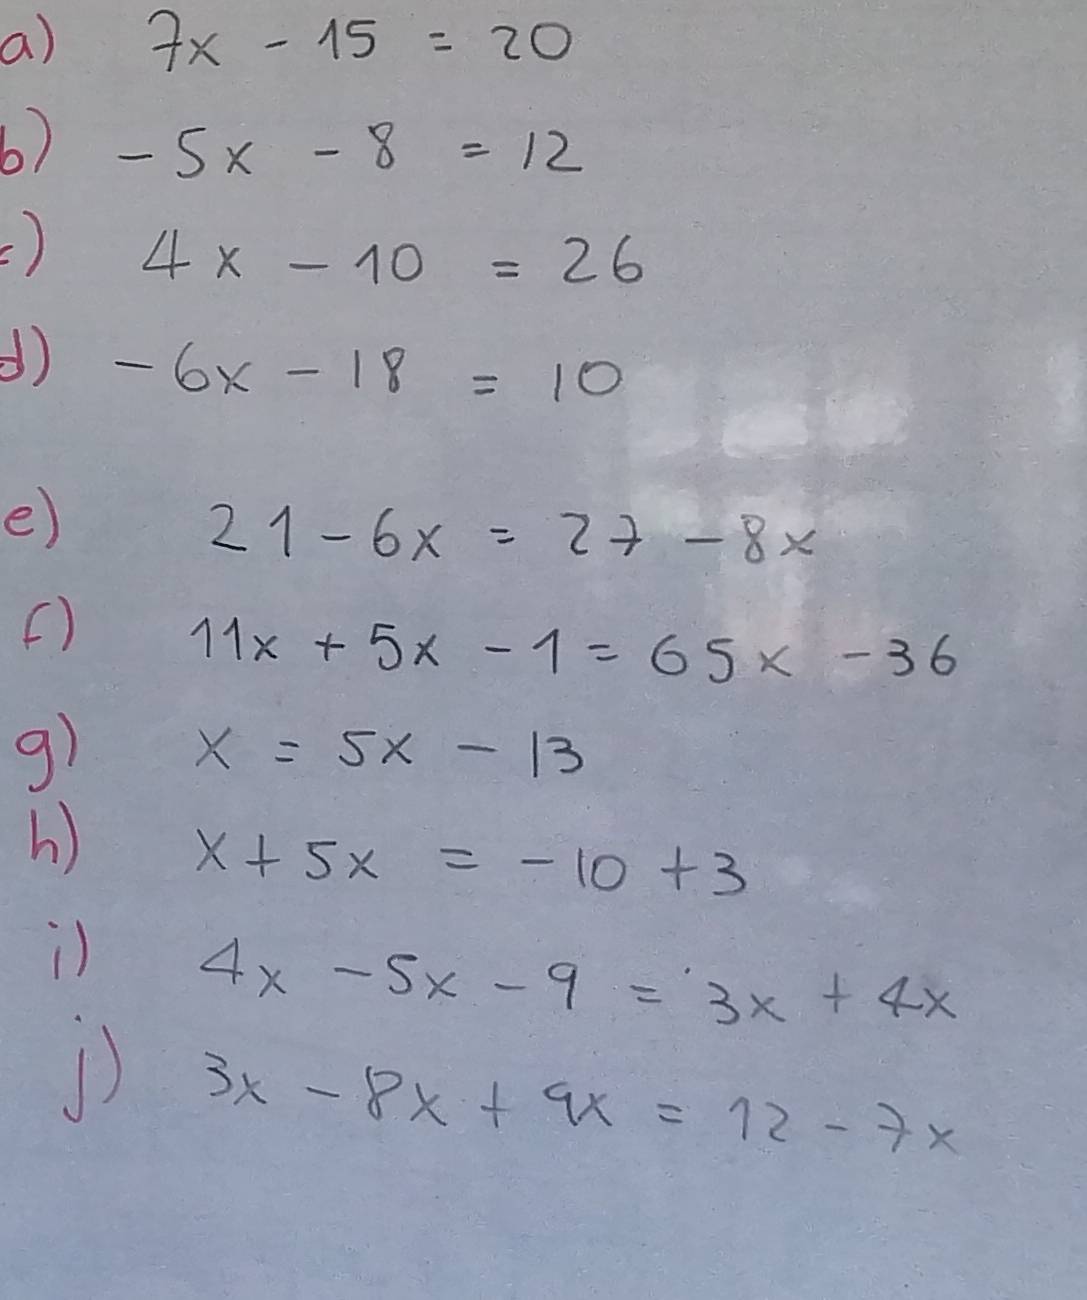 a) 7x - 15 = 20
b) -5x - 8 = 12
c) 4x - 10 = 26
d) -6x - 18 = 10
e) 21 - 6x = 27 - 8x
f) 11x + 5x - 1 = 65x - 36
g) x = 5x - 13
h) x + 5x = -10 + 3
i) 4x - 5x - 9 = 3x + 4x
j) 3x - 8x + 9x = 12 - 7x